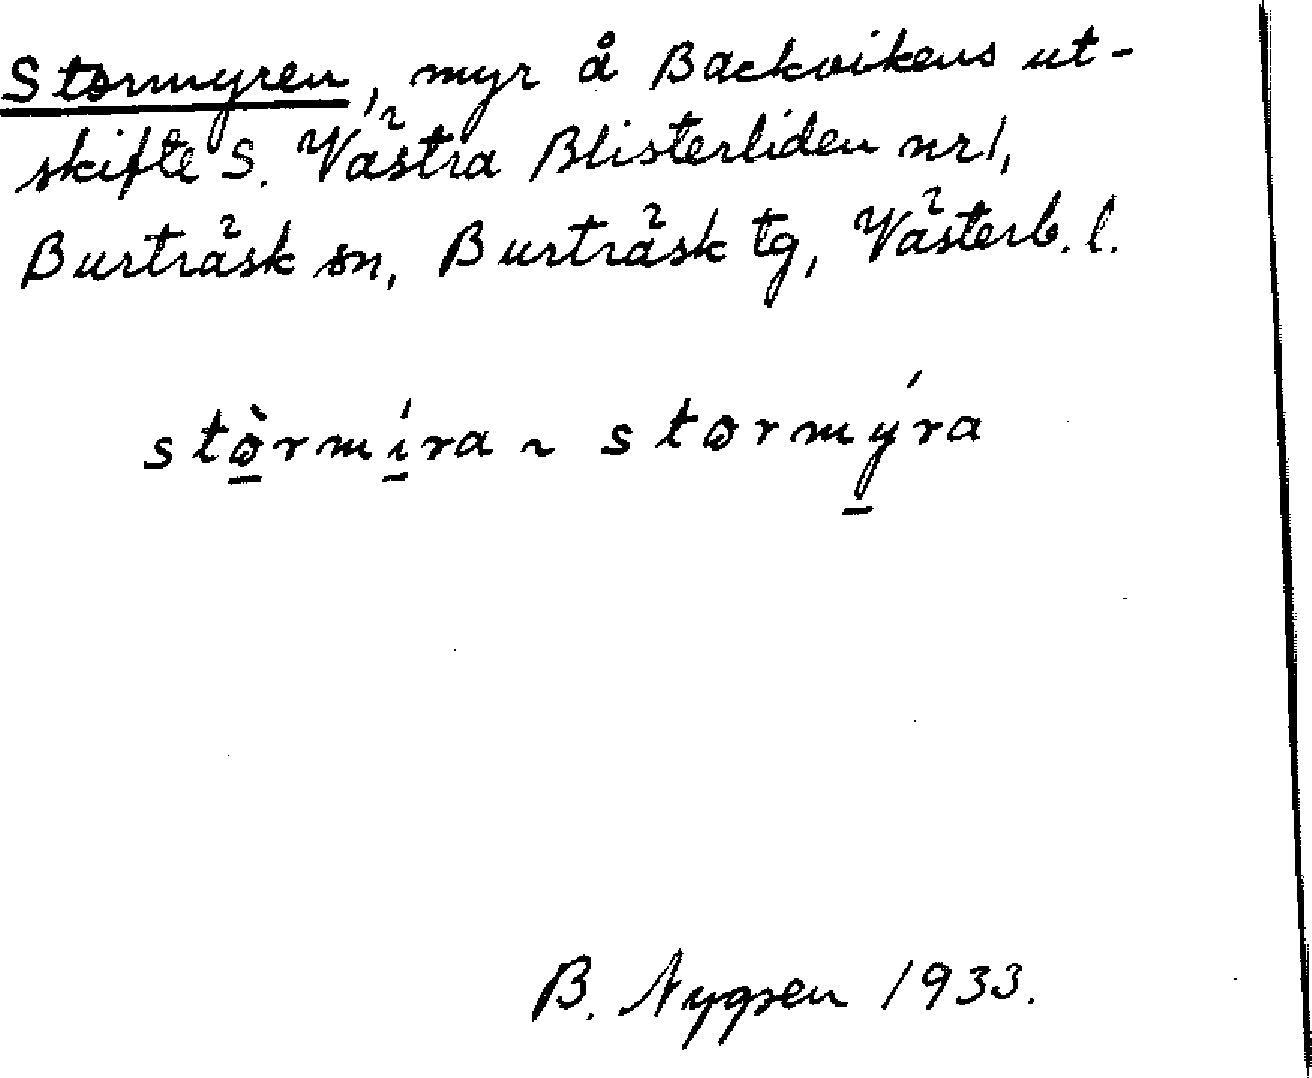 Stormyren, myr å Backvikens ut-
skifte S. Västra Blisterliden nr 1,
Burträsk sn, Burträsk tg, Västerb. l.
stò̱rmí̱ra ~ stormý̱ra
B. 1933.